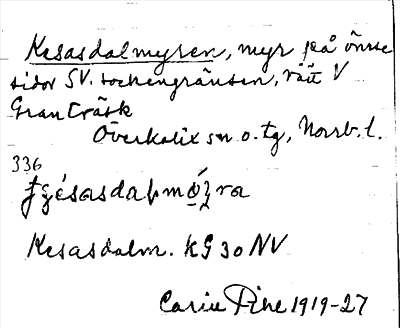 Kesasdalmyren, myr på ömse
sidor SV. sockengränsen, rätt V
Granträsk
Överkalix sn o. tg, Norrb. l.
336
Kesasdalm. KG 30 NV
Carin Pihl 1919-27